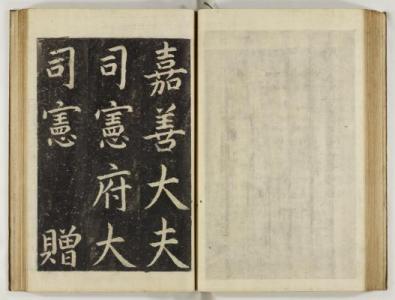 嘉善大夫
司憲府大
司憲 贈